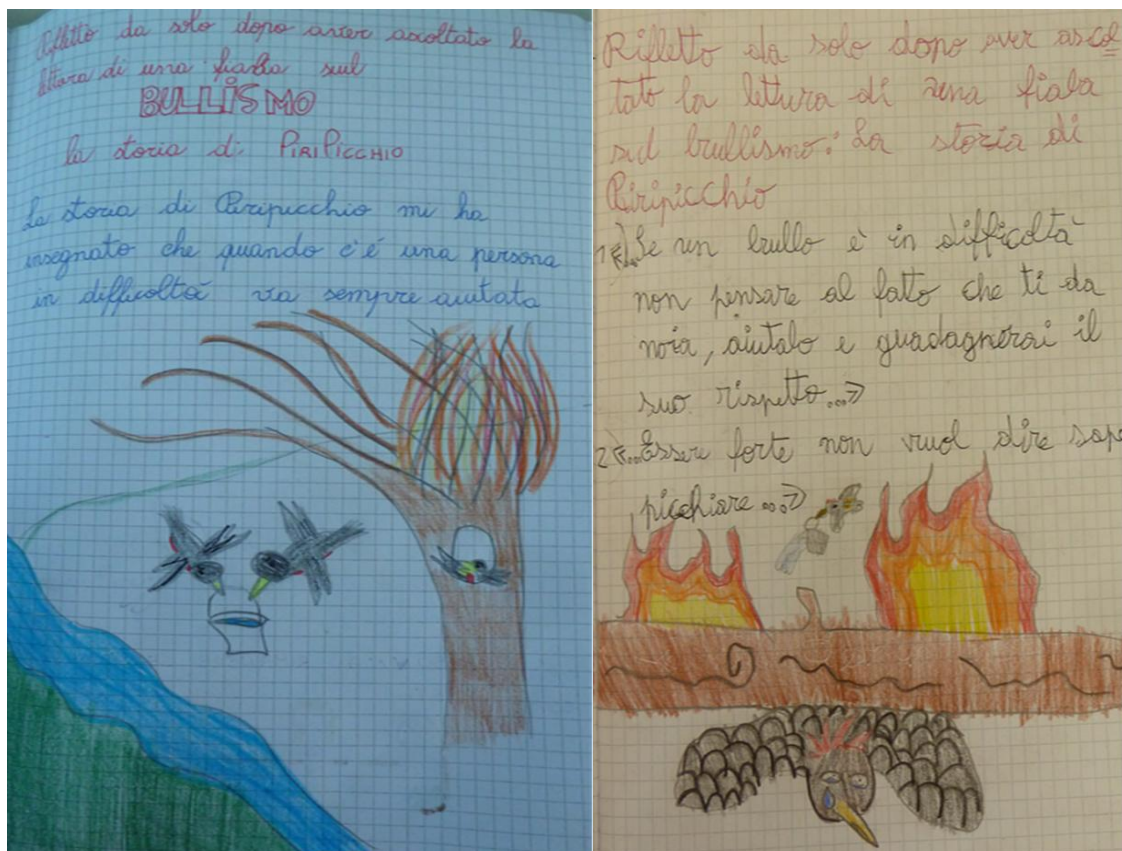 Rifletto da solo dopo aver ascoltato la
lettura di una fiaba sul
BULLISMO
la storia di PIRIPICCHIO
La storia di Piripicchio mi ha
insegnato che quando c'é una persona
in difficoltá va sempre aiutata
Rifletto da solo dopo aver ascol
tato la lettura di una fiaba
sul bullismo: La storia di
Piripicchio
1«...Se un bullo è in difficoltà
non pensare al fatto che ti da
noia, aiutalo e guadagnerai il
suo rispetto...»
2«...Essere forte non vuol dire sape
picchiare...»